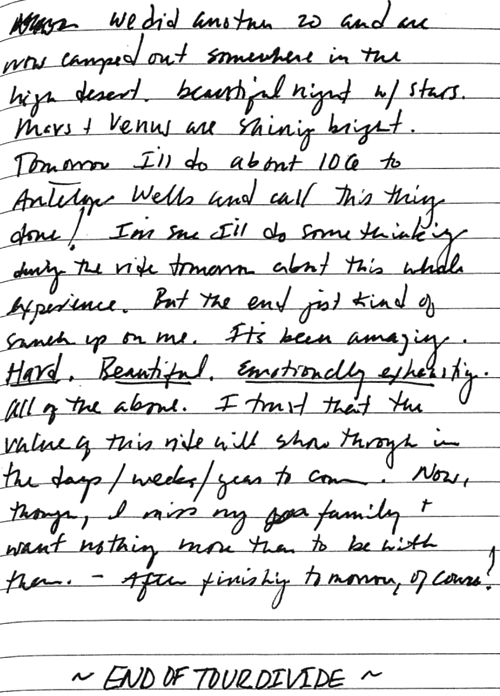 we did another 20 and are
now camped out somewhere in the
high desert. beautiful night w/ stars.
Mars + Venus are shining bright.
Tomorrow I'll do about 100 to
Antelope Wells and call this thing
done! I'm sure I'll do some thinking
during the ride tomorrow about this whole
experience. But the end just kind of
snuck up on me. It's been amazing.
Hard. Beautiful. Emotionally exhausting.
All of the above. I trust that the
value of this ride will show through in
the days/weeks/years to come. Now,
though, I miss my family +
want nothing more than to be with
them. - After finishing tomorrow, of course!
~ END OF TOUR DIVIDE ~